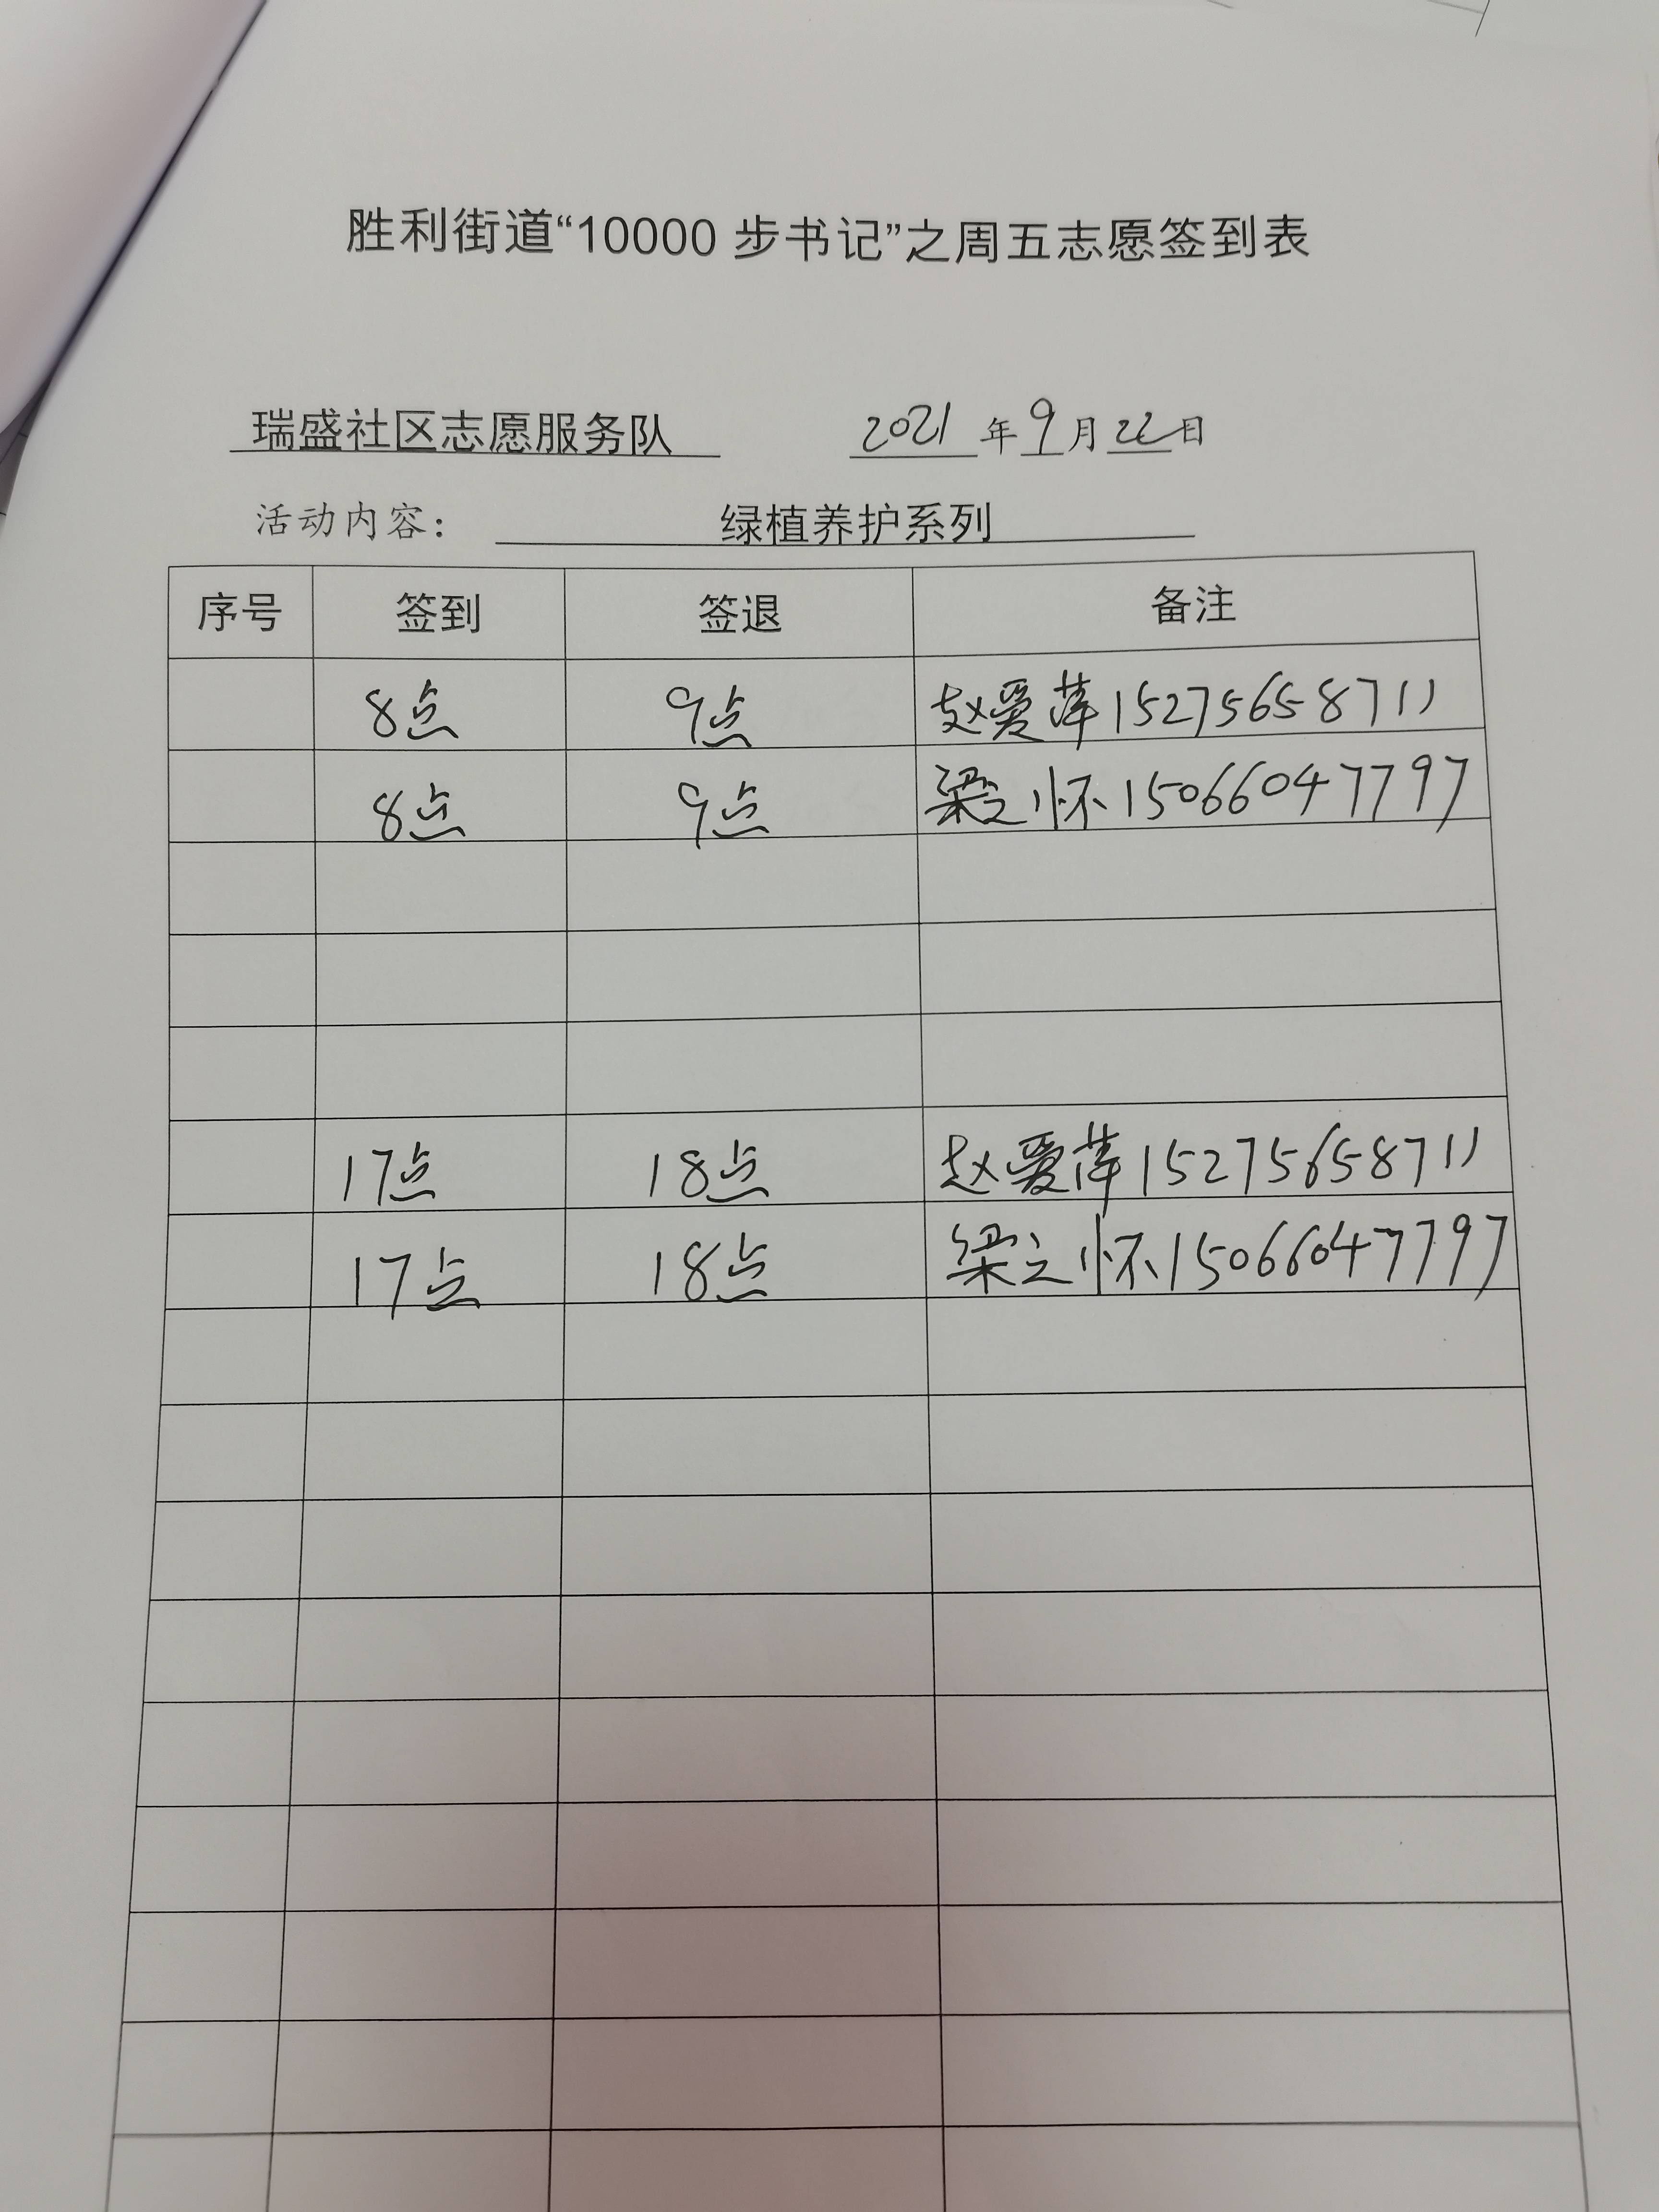 胜利街道“10000 步书记”之周五志愿签到表
瑞盛社区志愿服务队 2021 年 9 月 22 日
活动内容： 绿植养护系列
序号 签到 签退 备注
8点 9点 赵爱萍 15275658711
8点 9点 梁之怀 15066047797
17点 18点 赵爱萍 15275658711
17点 18点 梁之怀 15066047797